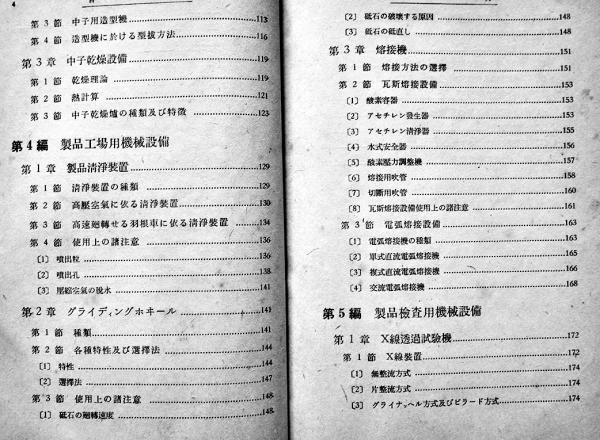 4
第3節 中子用造型機 113
第4節 造型機に於ける型拔方法 116
第3章 中子乾燥設備 119
第1節 乾燥理論 119
第2節 熱計算 121
第3節 中子乾燥爐の種類及び特徴 123
第4編 製品工場用機械設備
第1章 製品淸淨装置 129
第1節 淸淨装置の種類 129
第2節 高壓空氣に依る淸淨装置 130
第3節 高速廻轉せる羽根車に依る淸淨装置 134
第4節 使用上の諸注意 136
〔1〕 噴出粒 136
〔2〕 噴出孔 138
〔3〕 壓縮空氣の脱水 141
第2章 グライディングホキール 141
第1節 種類 141
第2節 各種特性及び選擇法 144
〔1〕 特性 144
〔2〕 選擇法 147
第3節 使用上の諸注意 148
〔1〕 砥石の廻轉速度 148
〔2〕 砥石の破壊する原因 148
〔3〕 砥石の砥直し 148
第3章 熔接機 151
第1節 熔接方法の選擇 151
第2節 瓦斯熔接設備 153
〔1〕 酸素容器 153
〔2〕 アセチレン發生器 153
〔3〕 アセチレン淸淨器 155
〔4〕 水式安全器 156
〔5〕 酸素壓力調整機 157
〔6〕 熔接用吹管 158
〔7〕 切斷用吹管 160
〔8〕 瓦斯熔接設備使用上の諸注意 161
第3節 電弧熔接設備 163
〔1〕 電弧熔接機の種類 163
〔2〕 單式直流電弧熔接機 165
〔3〕 複式直流電弧熔接機 166
〔4〕 交流電弧熔接機 168
第5編 製品檢査用機械設備
第1章 X線透過試驗機 172
第1節 X線装置 172
〔1〕 無整流方式 174
〔2〕 片整流方式 174
〔3〕 グライナッヘル方式及びビラード方式 174